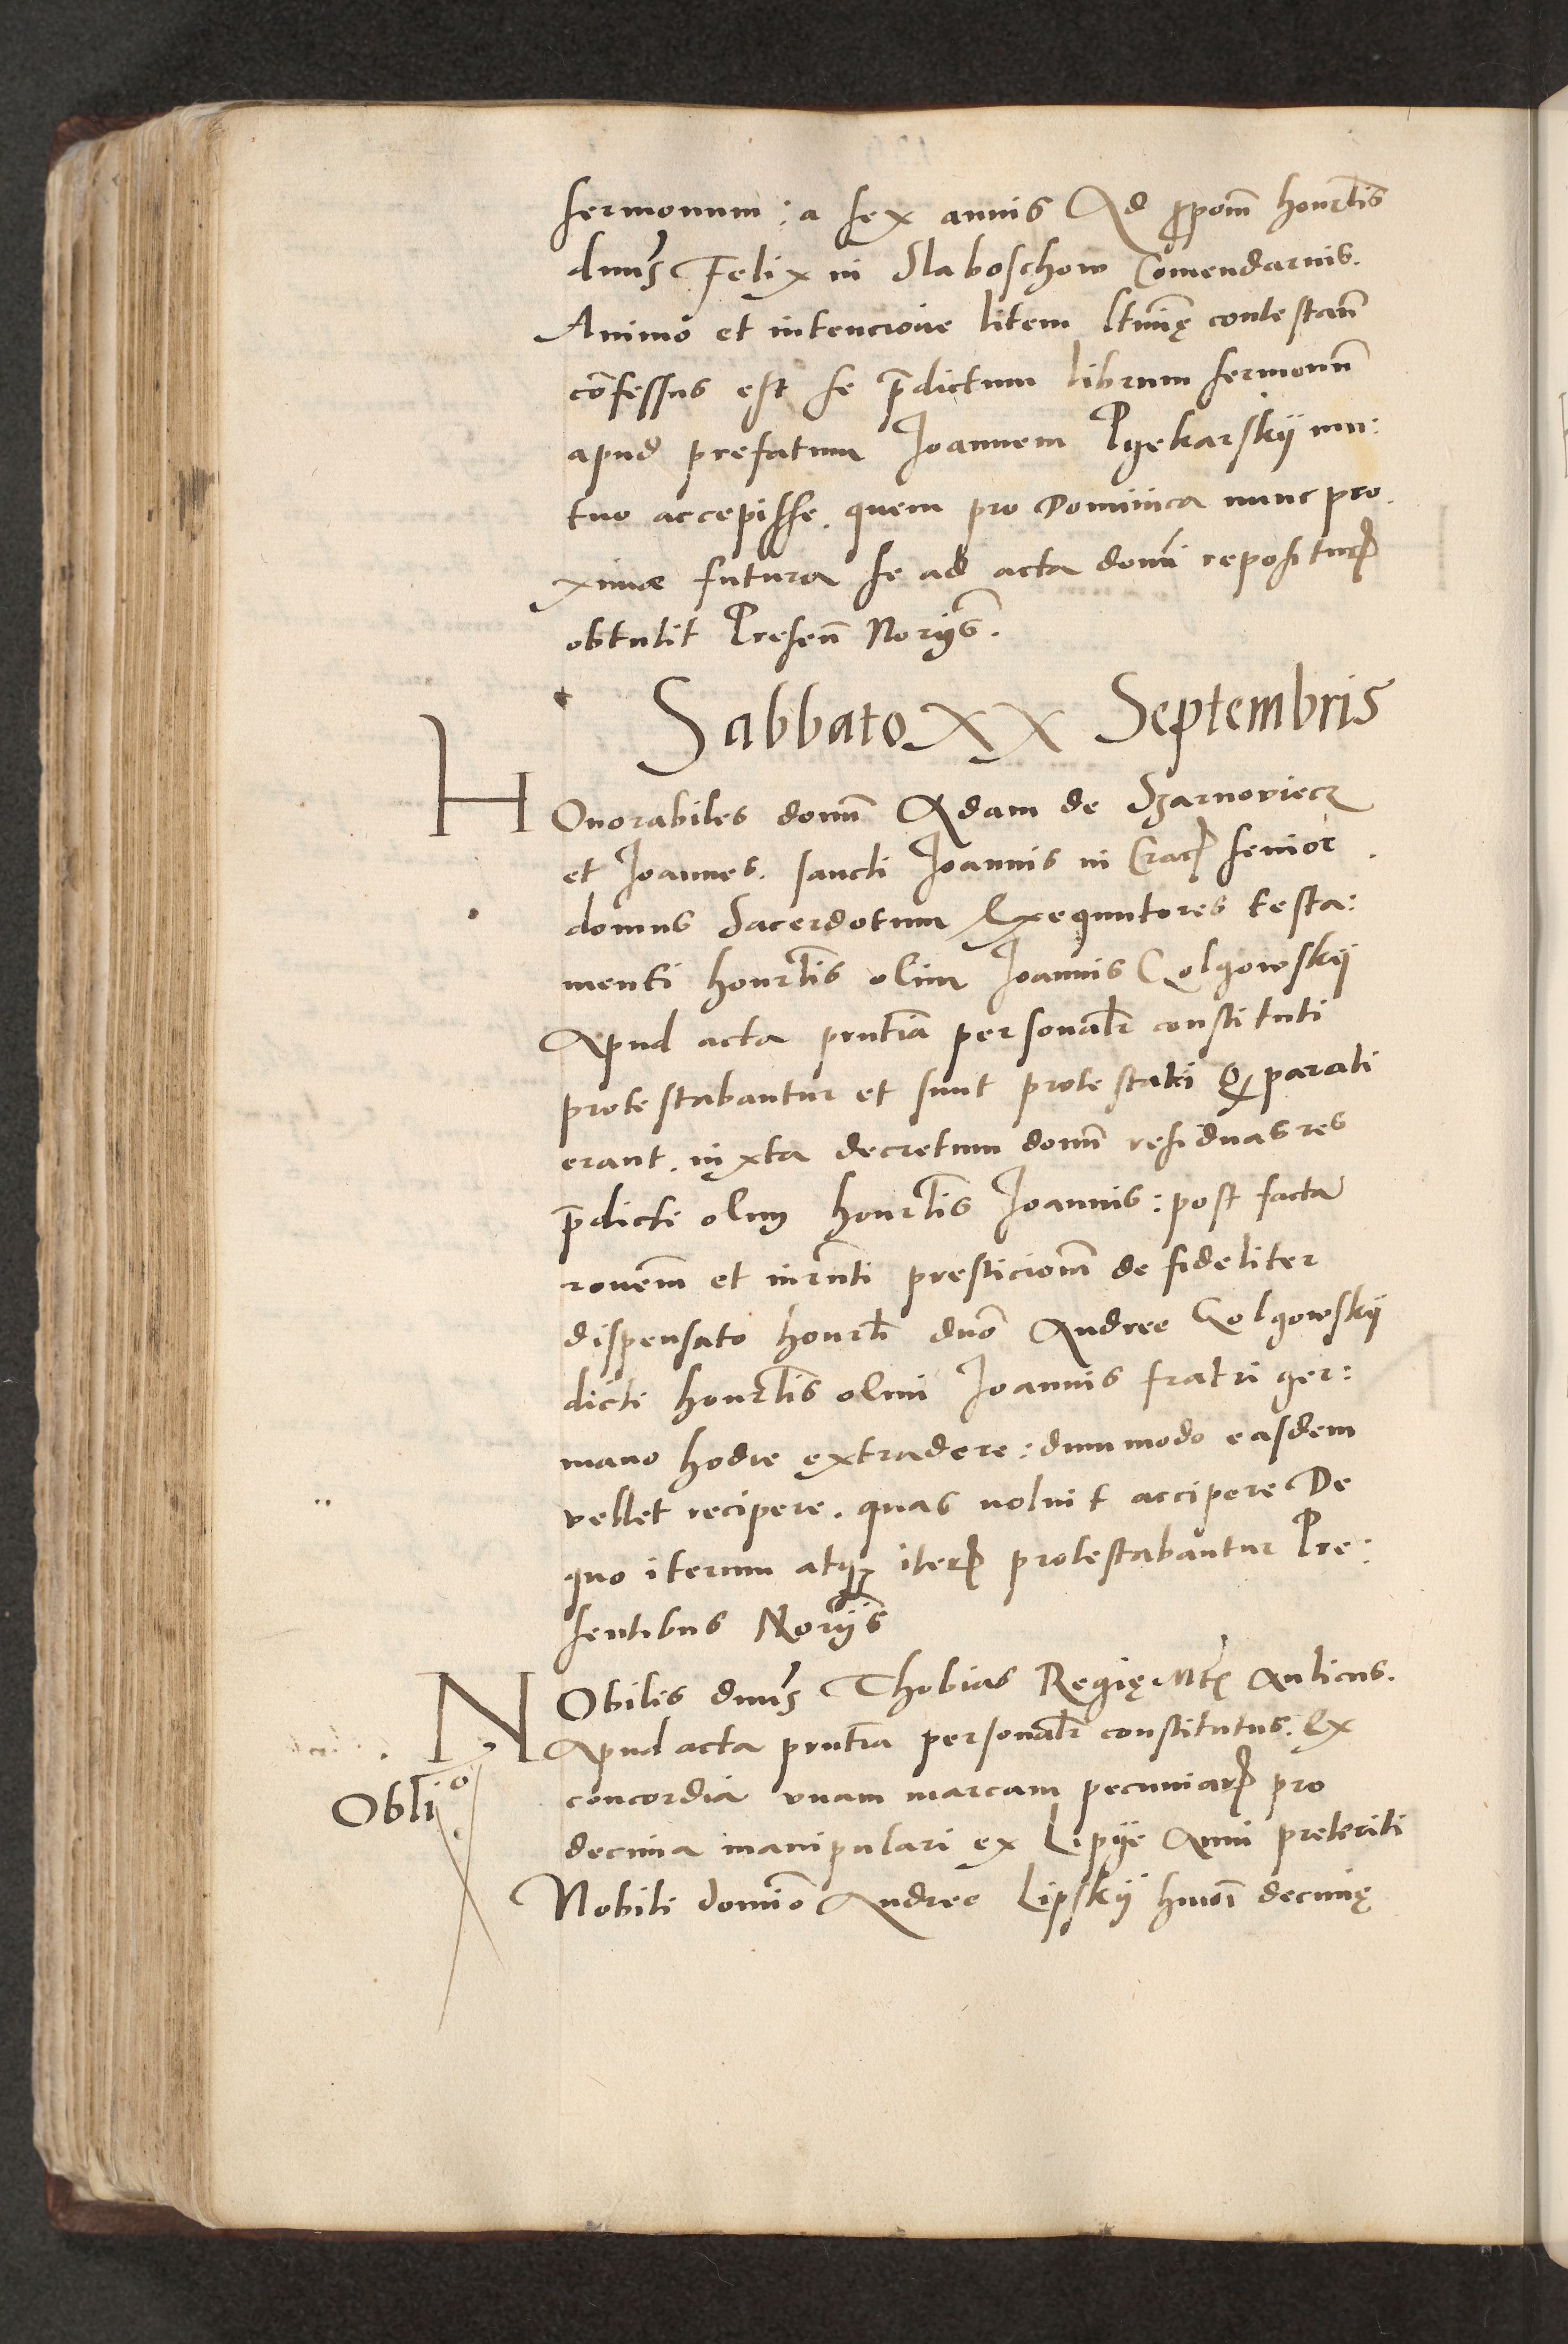 sermonum : a sex annis Ad p̄pom̄ honrlis
dnūs Felix in Slaboschow Comendarius.
Animo et intencione litem ltīme contestan̄
cōfessus est se p̄dictum librum sermonū
apud prefatum Joannem Pyekarskÿ mu:
tuo accepisse. quem pro Dominica nunc pro.
xime futura se ad acta domī repositurū
obtulit Presen̄ Norijs̄.
Sabbato XX Septembris
HOnorabiles domī Adam de Szarnoviecz
et Joannes. sancti Joannis in Crac̄ senior
domus Sacerdotum Exequutores testa:
menti honrlīs olim Joannis Golgowskÿ
Apud acta prntīa personalr̄ constituti
protestabantur et sunt protestati q̄ parati
erant. iuxta decretum domī residuas res
p̄dicti olim honrlīs Joannis : post factā
ronem̄ et iurn̄ti presticiom̄ de fideliter
dispensato honrlī dnō Andree Golgowskÿ
dicti honrlīs olim Joannis fratri ger:
mano hodie extradere : dummodo easdem
vellet recipere. quas noluit accipere De
quo iterum atq; iterū protestabantur Pre:
sentibus Norijs̄
NObilis dnūs Thobias Regię Mtīs Aulicus.
Apud acta prntīa personalr̄ constitutus. Ex
Obligº
concordia vnam marcam pecuniarū pro
decima manipulari ex Lipÿe Anni preteriti
Nobili domīo Andree Lipskÿ hmōi decimę